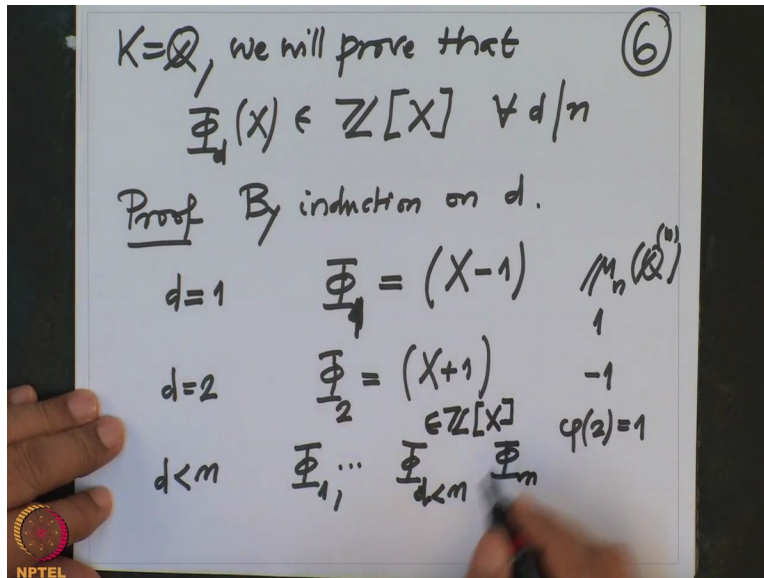 K=ℚ, we will prove that ⑥
Φ_d(X) ∈ ℤ[X] ∀ d/n
Proof By induction on d.
d=1 Φ_1 = (X-1) μ_n(ℚ^(n))
1
d=2 Φ_2 = (X+1) -1
∈ℤ[X] φ(2)=1
d<n Φ_1,... Φ_d<n Φ_n
NPTEL